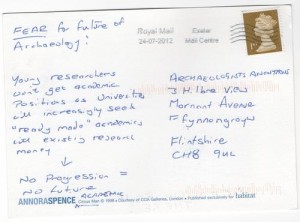 FEAR for future of
Archaeology!
Young researchers
won't get academic
positions as universities
will increasingly seek
"ready made" academics
with existing research
money
↓
NO Progression =
NO future
ACADEMIC
Royal Mail
24-07-2012
Exeter
Mail Centre
ARCHAEOLOGISTS ANONYMOUS
3 Hilbre View
Mornant Avenue
Ffynnongroyw
Flintshire
CH8 9UL
ANNORASPENCE
habitat